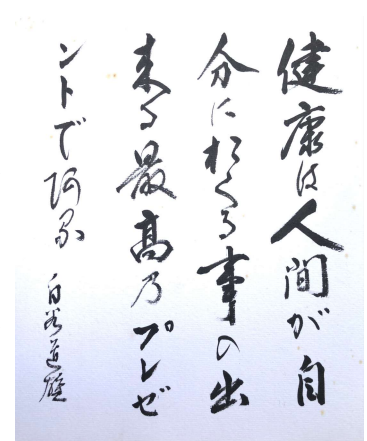 健康は人間が自
分におくる事の出
来る最高乃プレゼ
ントで阿る